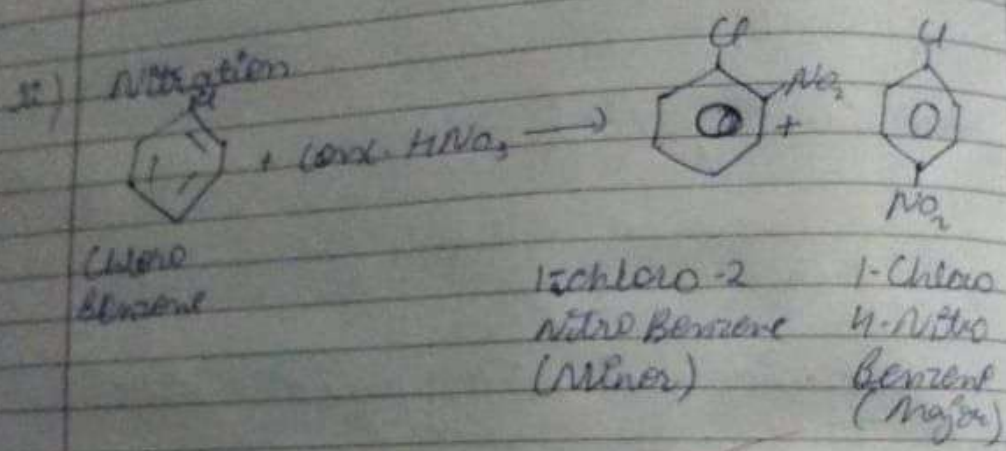 ii) Nitration
Cl
Cl
Cl
NO2
+ Conc. HNO3 → +
NO2
Chloro
Benzene
1-chloro-2
Nitro Benzene
(Minor)
1-Chloro
4-Nitro
Benzene
(Major)